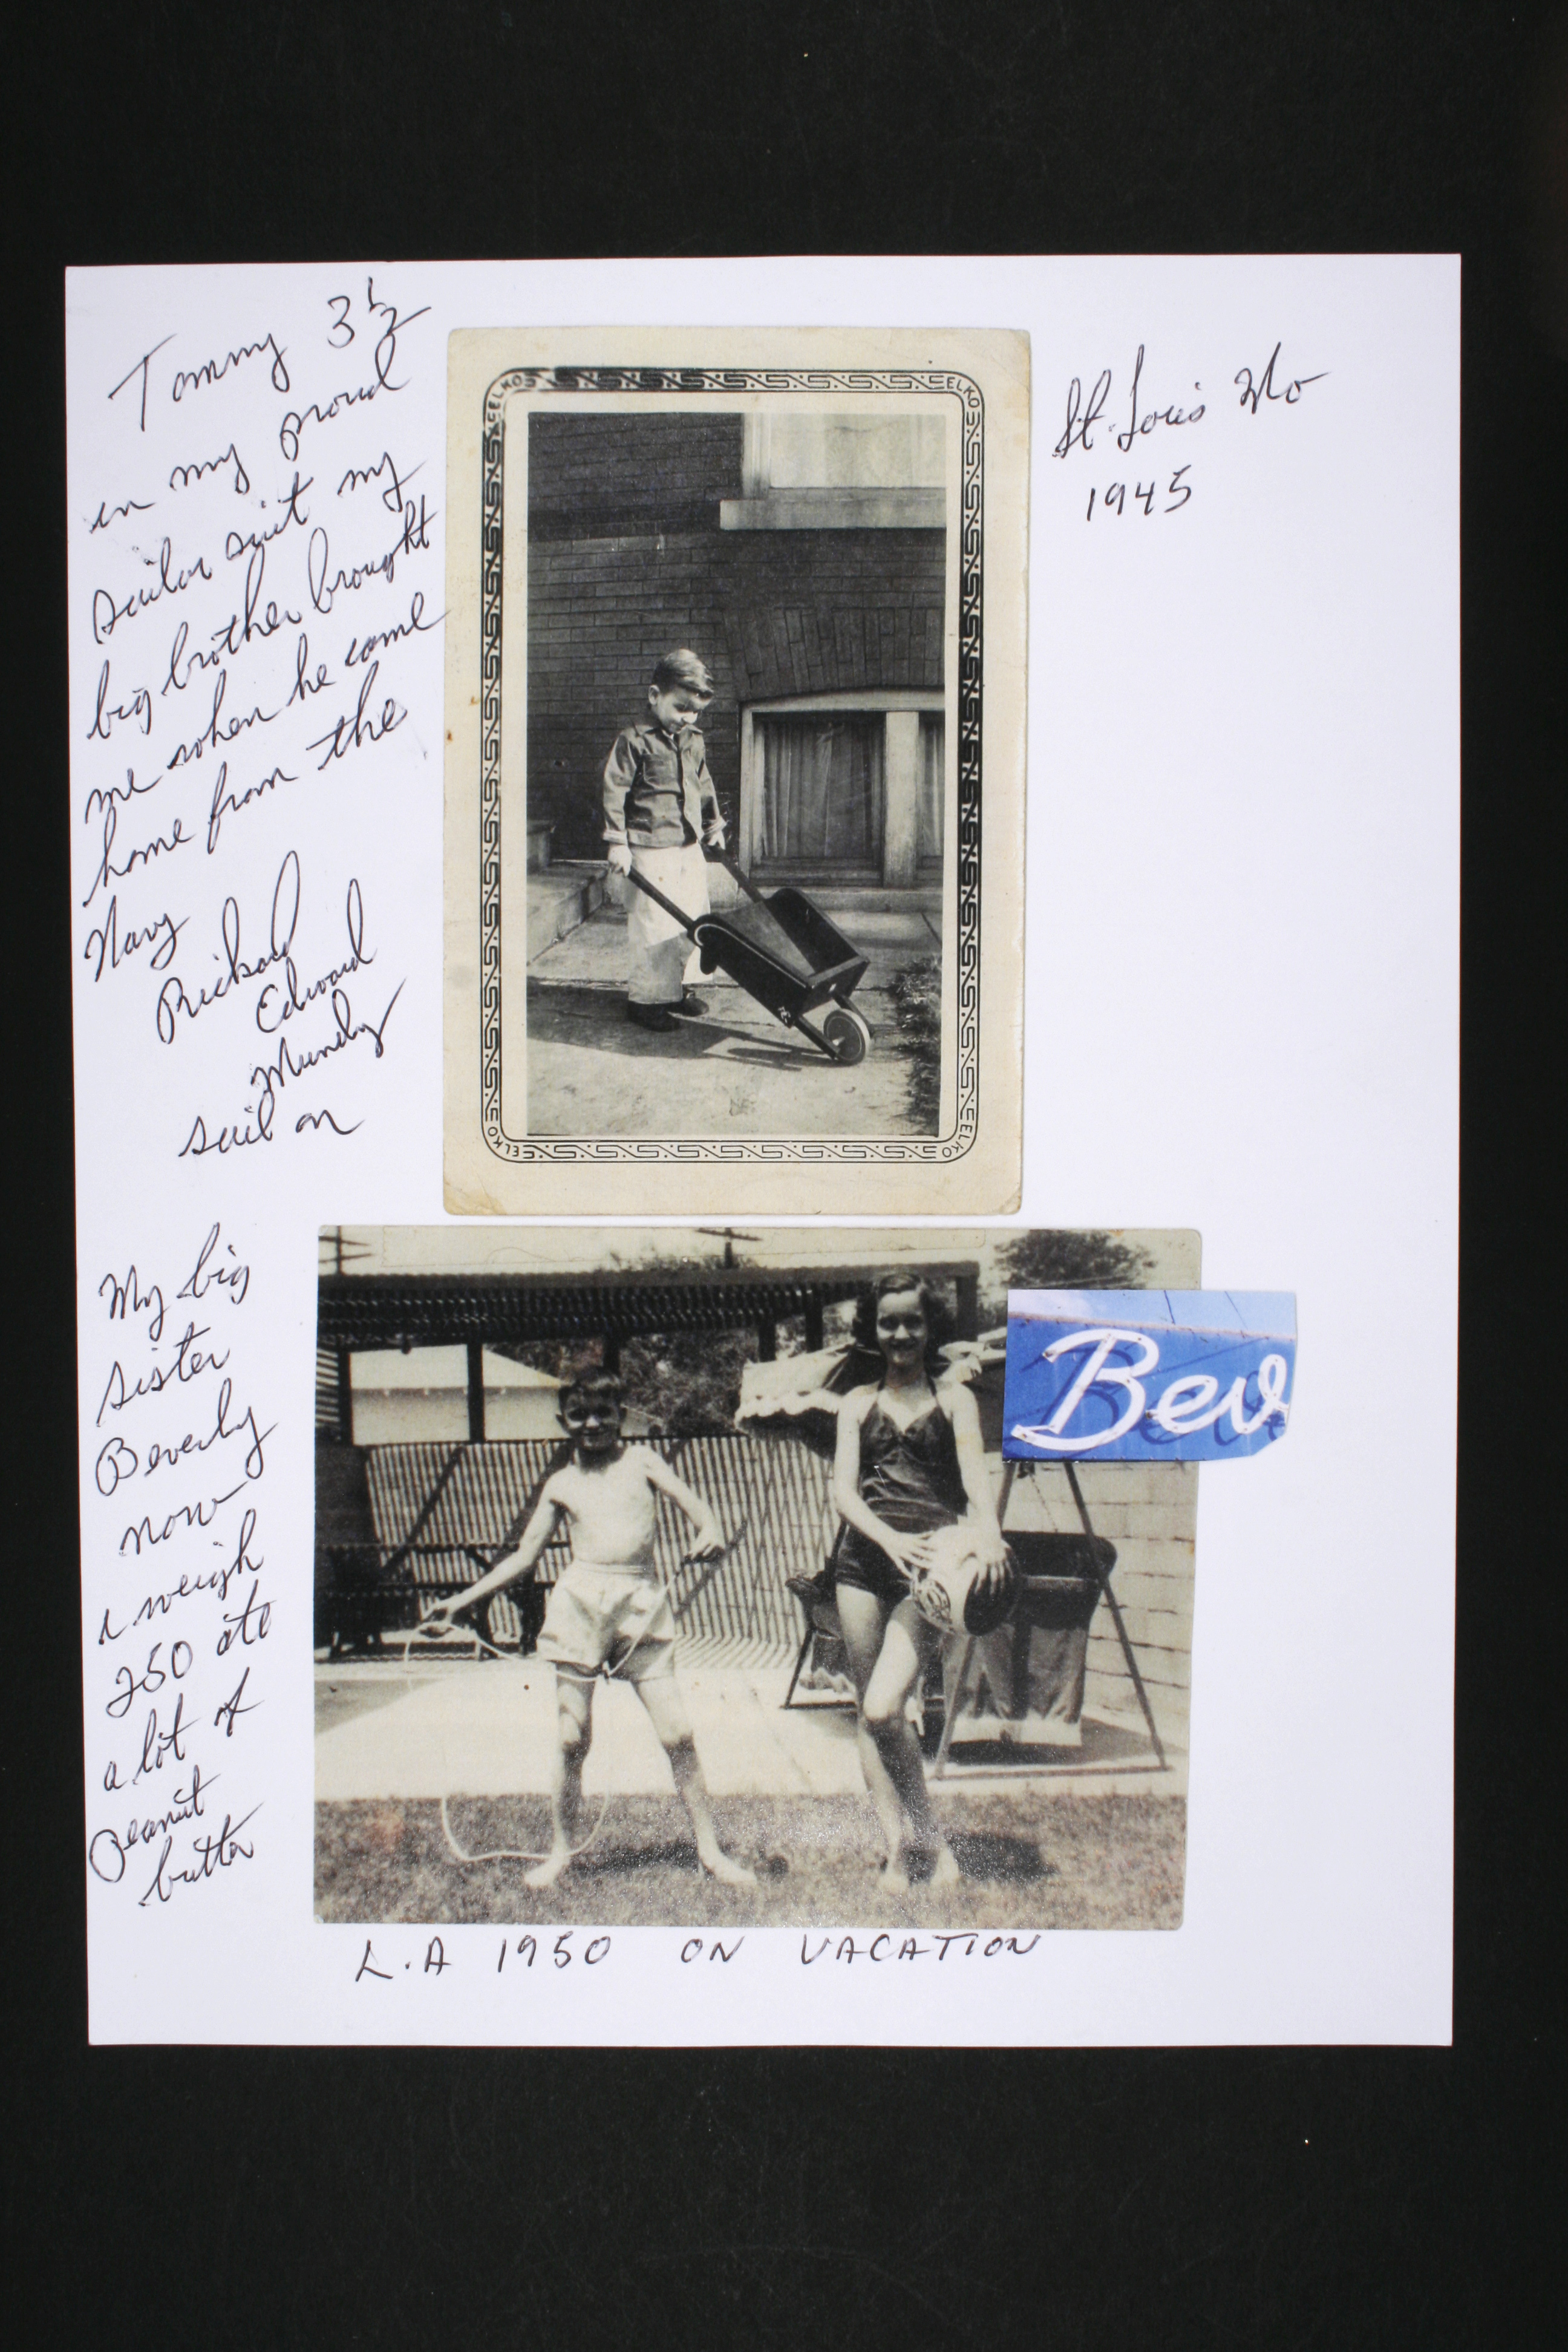 Tommy 3 1/2
in my proud
sailor suit my
big brother brought
me when he came
home from the
Navy
Richard
Edward
Mundy
sail on
St. Louis Mo
1945
ELKO
ELKO
ELKO
ELKO
My big
sister
Beverly
now
I weigh
250 ate
a lot of
peanut
butter
Bev
L.A 1950 ON VACATION